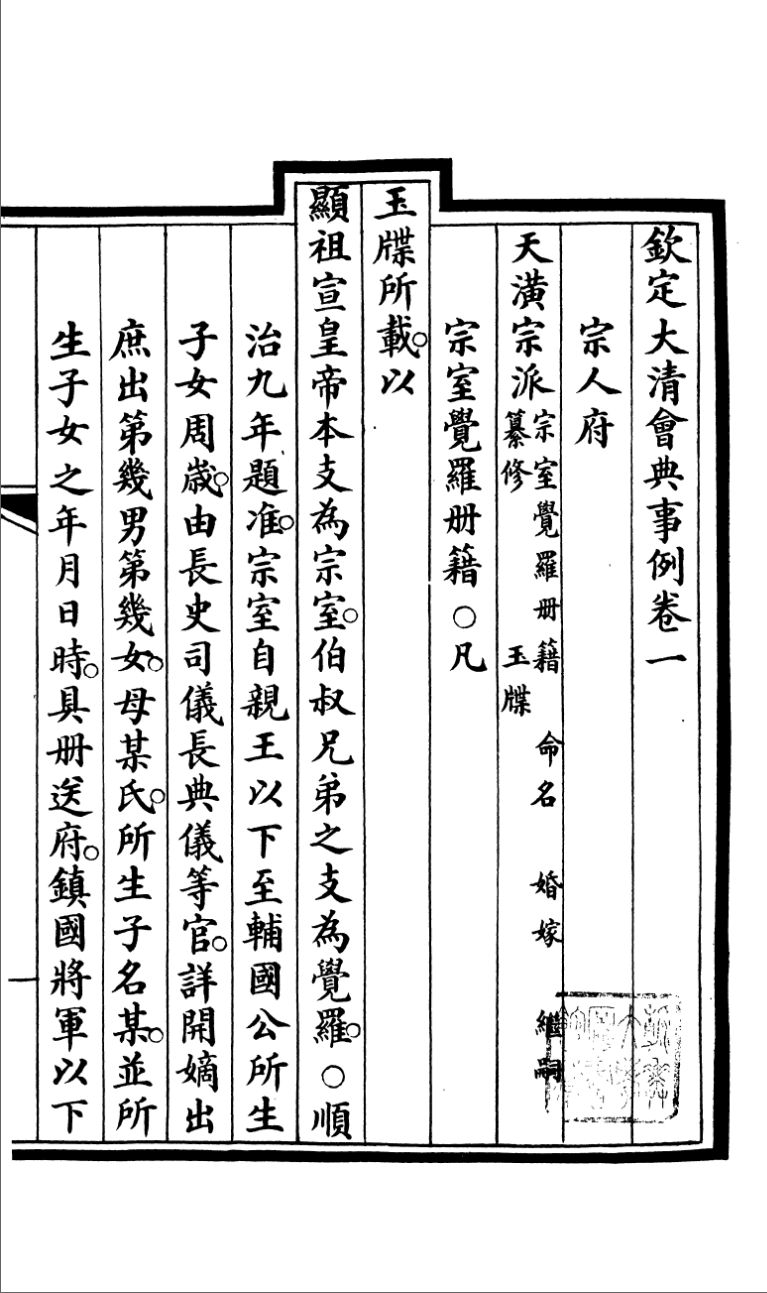 欽定大清會典事例卷一
宗人府
天潢宗派宗室覺羅册籍 命名 婚嫁 繼嗣
纂修 玉牒
宗室覺羅册籍○凡
玉牒所載。以
顯祖宣皇帝本支為宗室。伯叔兄弟之支為覺羅。○順
治九年題准。宗室自親王以下至輔國公所生
子女周歲。由長史司儀長典儀等官。詳開嫡出
庶出第幾男第幾女。母某氏。所生子名某。並所
生子女之年月日時。具册送府。鎮國將軍以下
一